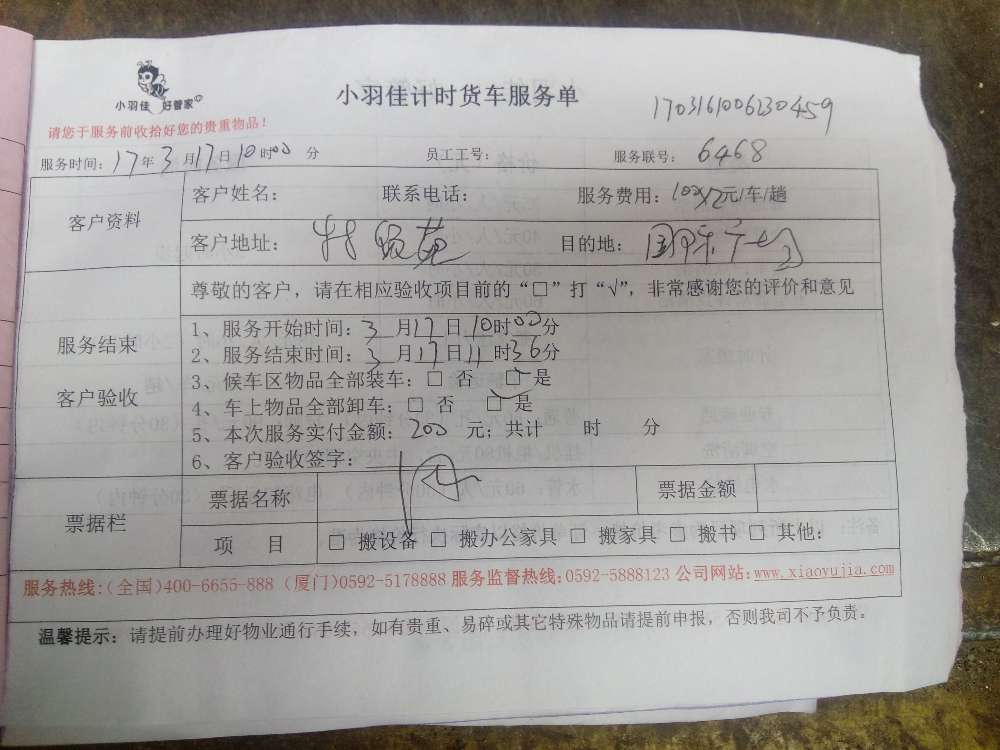 小羽佳 好管家
小羽佳计时货车服务单
1703161006230459
请您于服务前收拾好您的贵重物品！
服务时间：17年3月17日10时00分 员工工号： 服务联号：6468
客户资料
客户姓名： 联系电话： 服务费用：100×2元/车/趟
客户地址： 目的地：
服务结束
客户验收
尊敬的客户，请在相应验收项目前的“□”打“√”，非常感谢您的评价和意见
1、服务开始时间：3月17日10时00分
2、服务结束时间：3月17日11时36分
3、候车区物品全部装车：□ 否 □ 是
4、车上物品全部卸车：□ 否 □ 是
5、本次服务实付金额：200元；共计 时 分
6、客户验收签字：
票据栏
票据名称 票据金额
项 目 □ 搬设备 □ 搬办公家具 □ 搬家具 □ 搬书 □ 其他：
服务热线：(全国)400-6655-888 (厦门)0592-5178888 服务监督热线：0592-5888123 公司网站：www.xiaoyujia.com
温馨提示：请提前办理好物业通行手续，如有贵重、易碎或其它特殊物品请提前申报，否则我司不予负责。